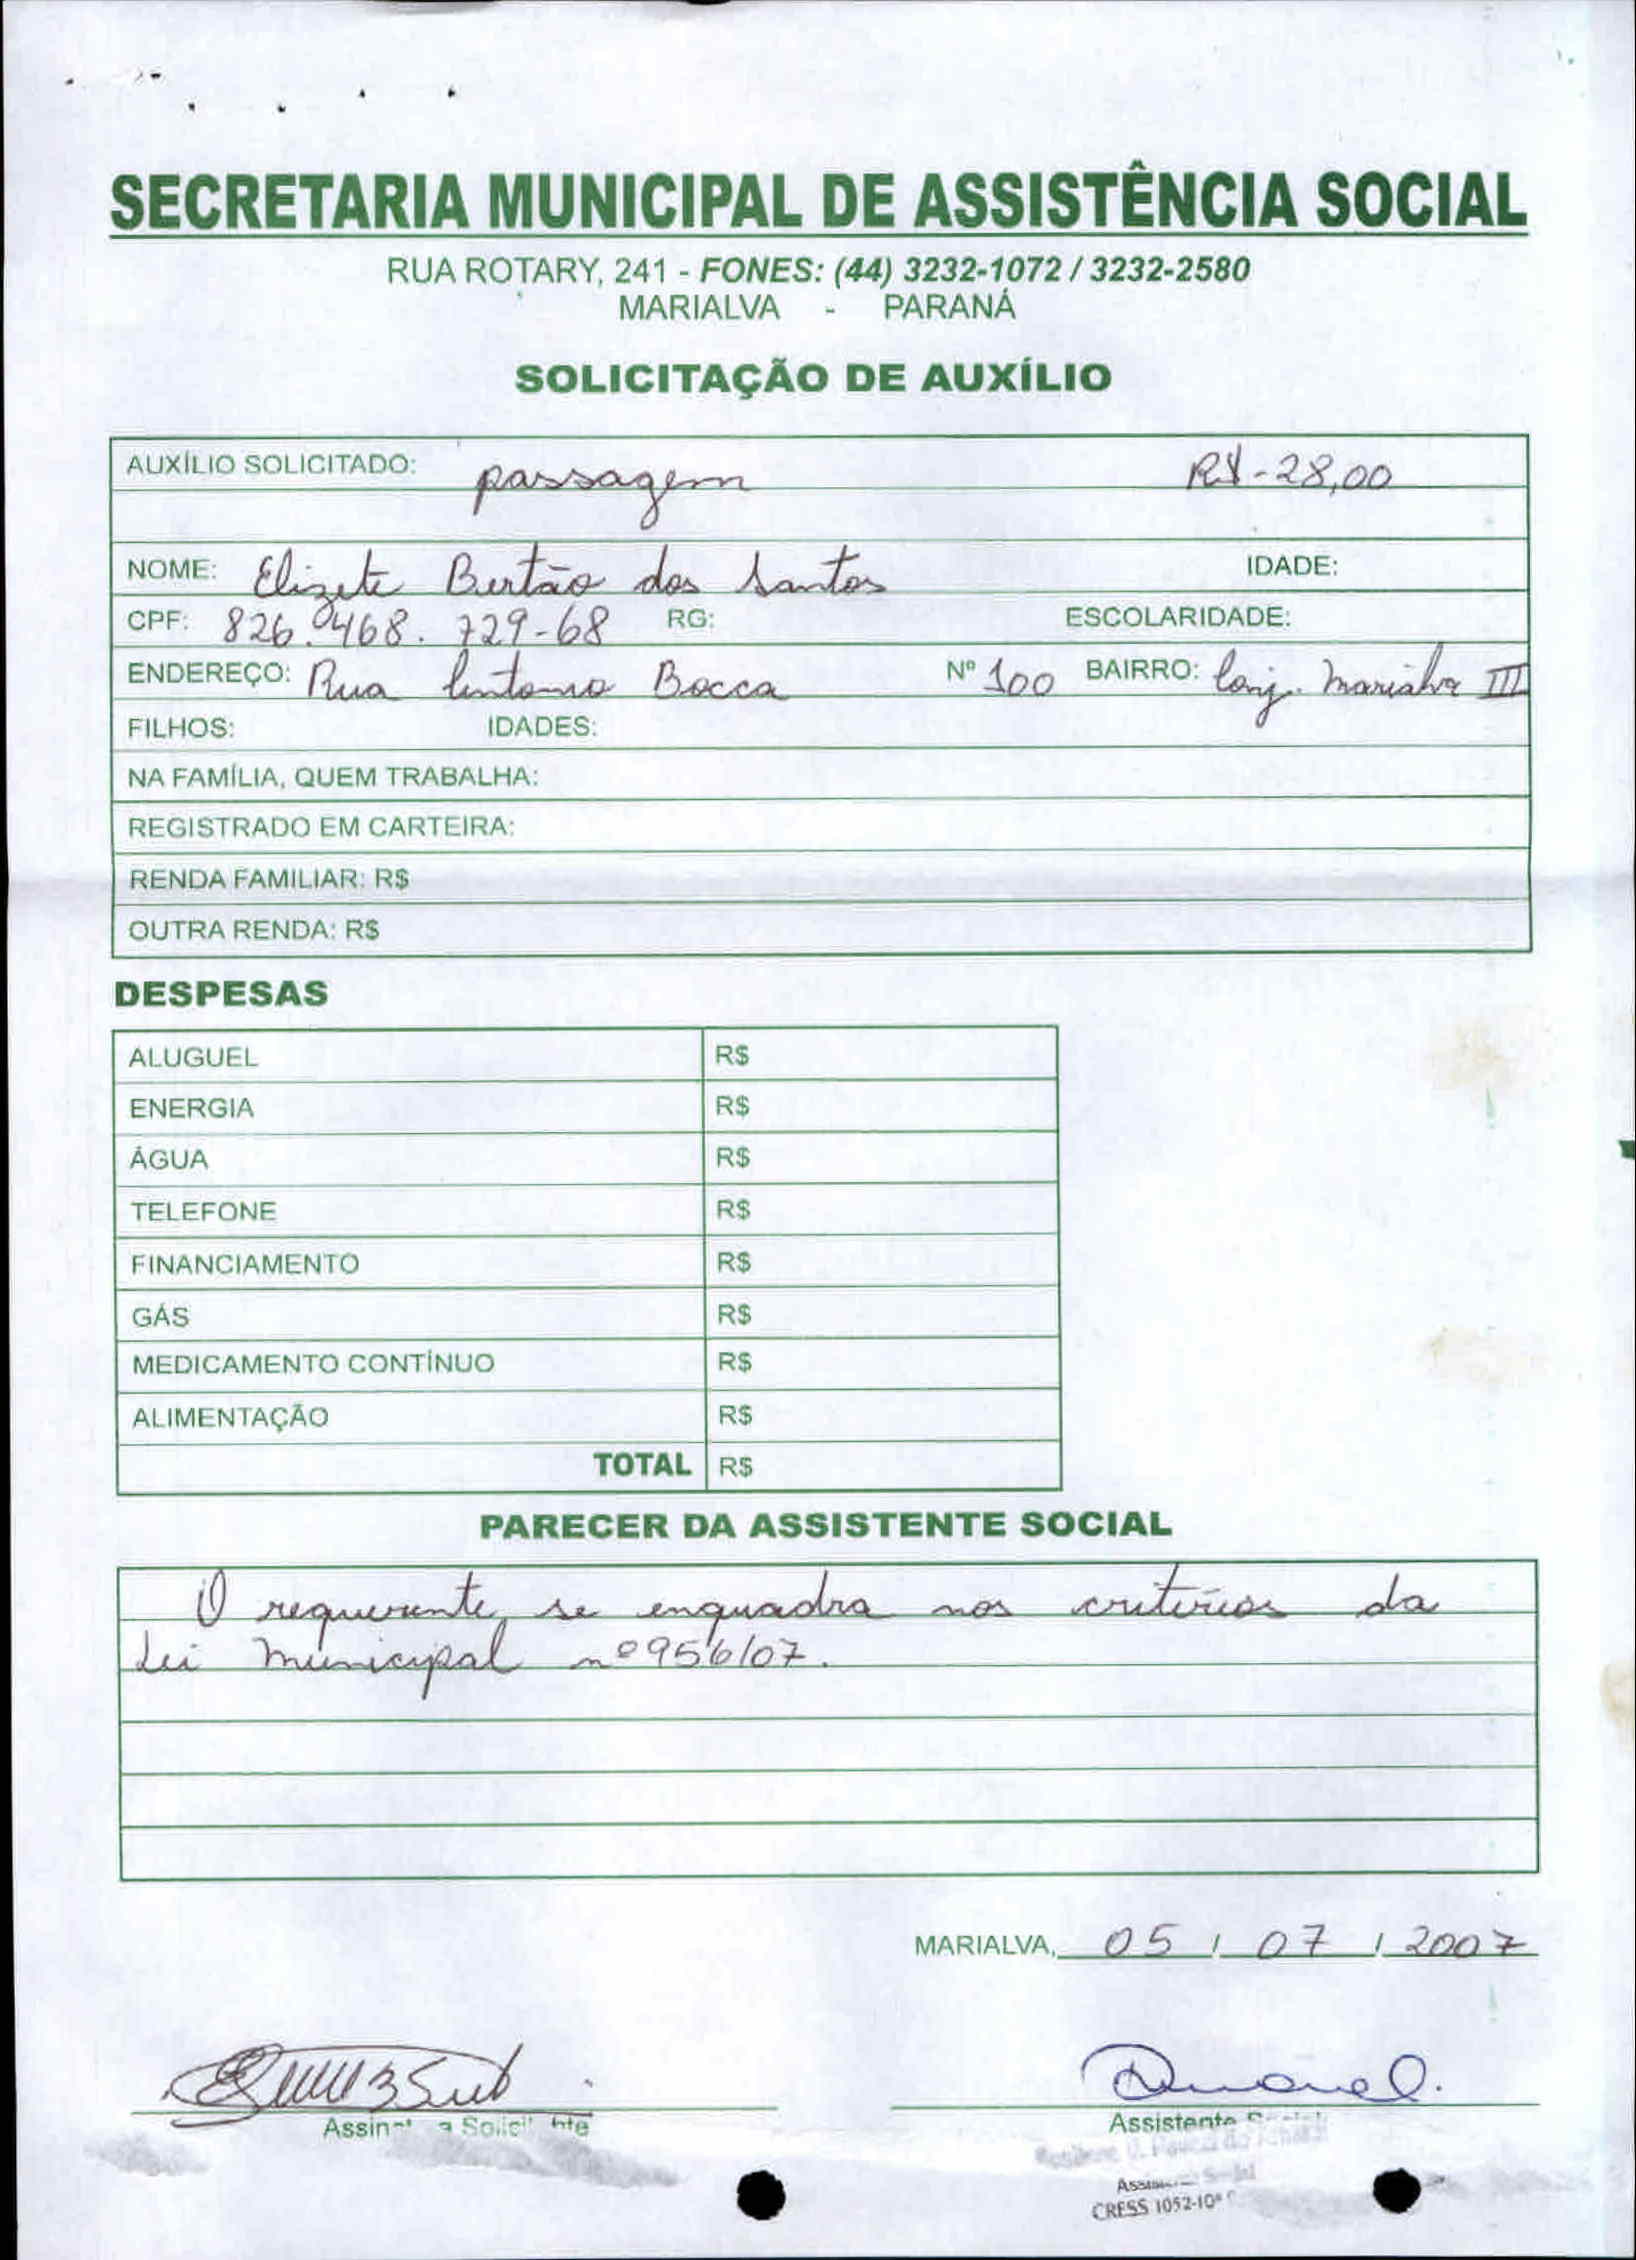 SECRETARIA MUNICIPAL DE ASSISTÊNCIA SOCIAL
RUA ROTARY, 241 - FONES: (44) 3232-1072 / 3232-2580
MARIALVA - PARANÁ
SOLICITAÇÃO DE AUXÍLIO
AUXÍLIO SOLICITADO: passagem R$-28,00
NOME: Elizete Bertão dos Santos IDADE:
CPF: 826.468.729-68 RG: ESCOLARIDADE:
ENDEREÇO: Rua Antonio Bocca Nº 100 BAIRRO: Conj. Marialva III
FILHOS: IDADES:
NA FAMÍLIA, QUEM TRABALHA:
REGISTRADO EM CARTEIRA:
RENDA FAMILIAR: R$
OUTRA RENDA: R$
DESPESAS
ALUGUEL R$
ENERGIA R$
ÁGUA R$
TELEFONE R$
FINANCIAMENTO R$
GÁS R$
MEDICAMENTO CONTÍNUO R$
ALIMENTAÇÃO R$
TOTAL R$
PARECER DA ASSISTENTE SOCIAL
O requerente, se enquadra nos critérios da
Lei Municipal nº 956/07.
MARIALVA, 05 / 07 / 2007
Assistente
CRESS 1052-10ª